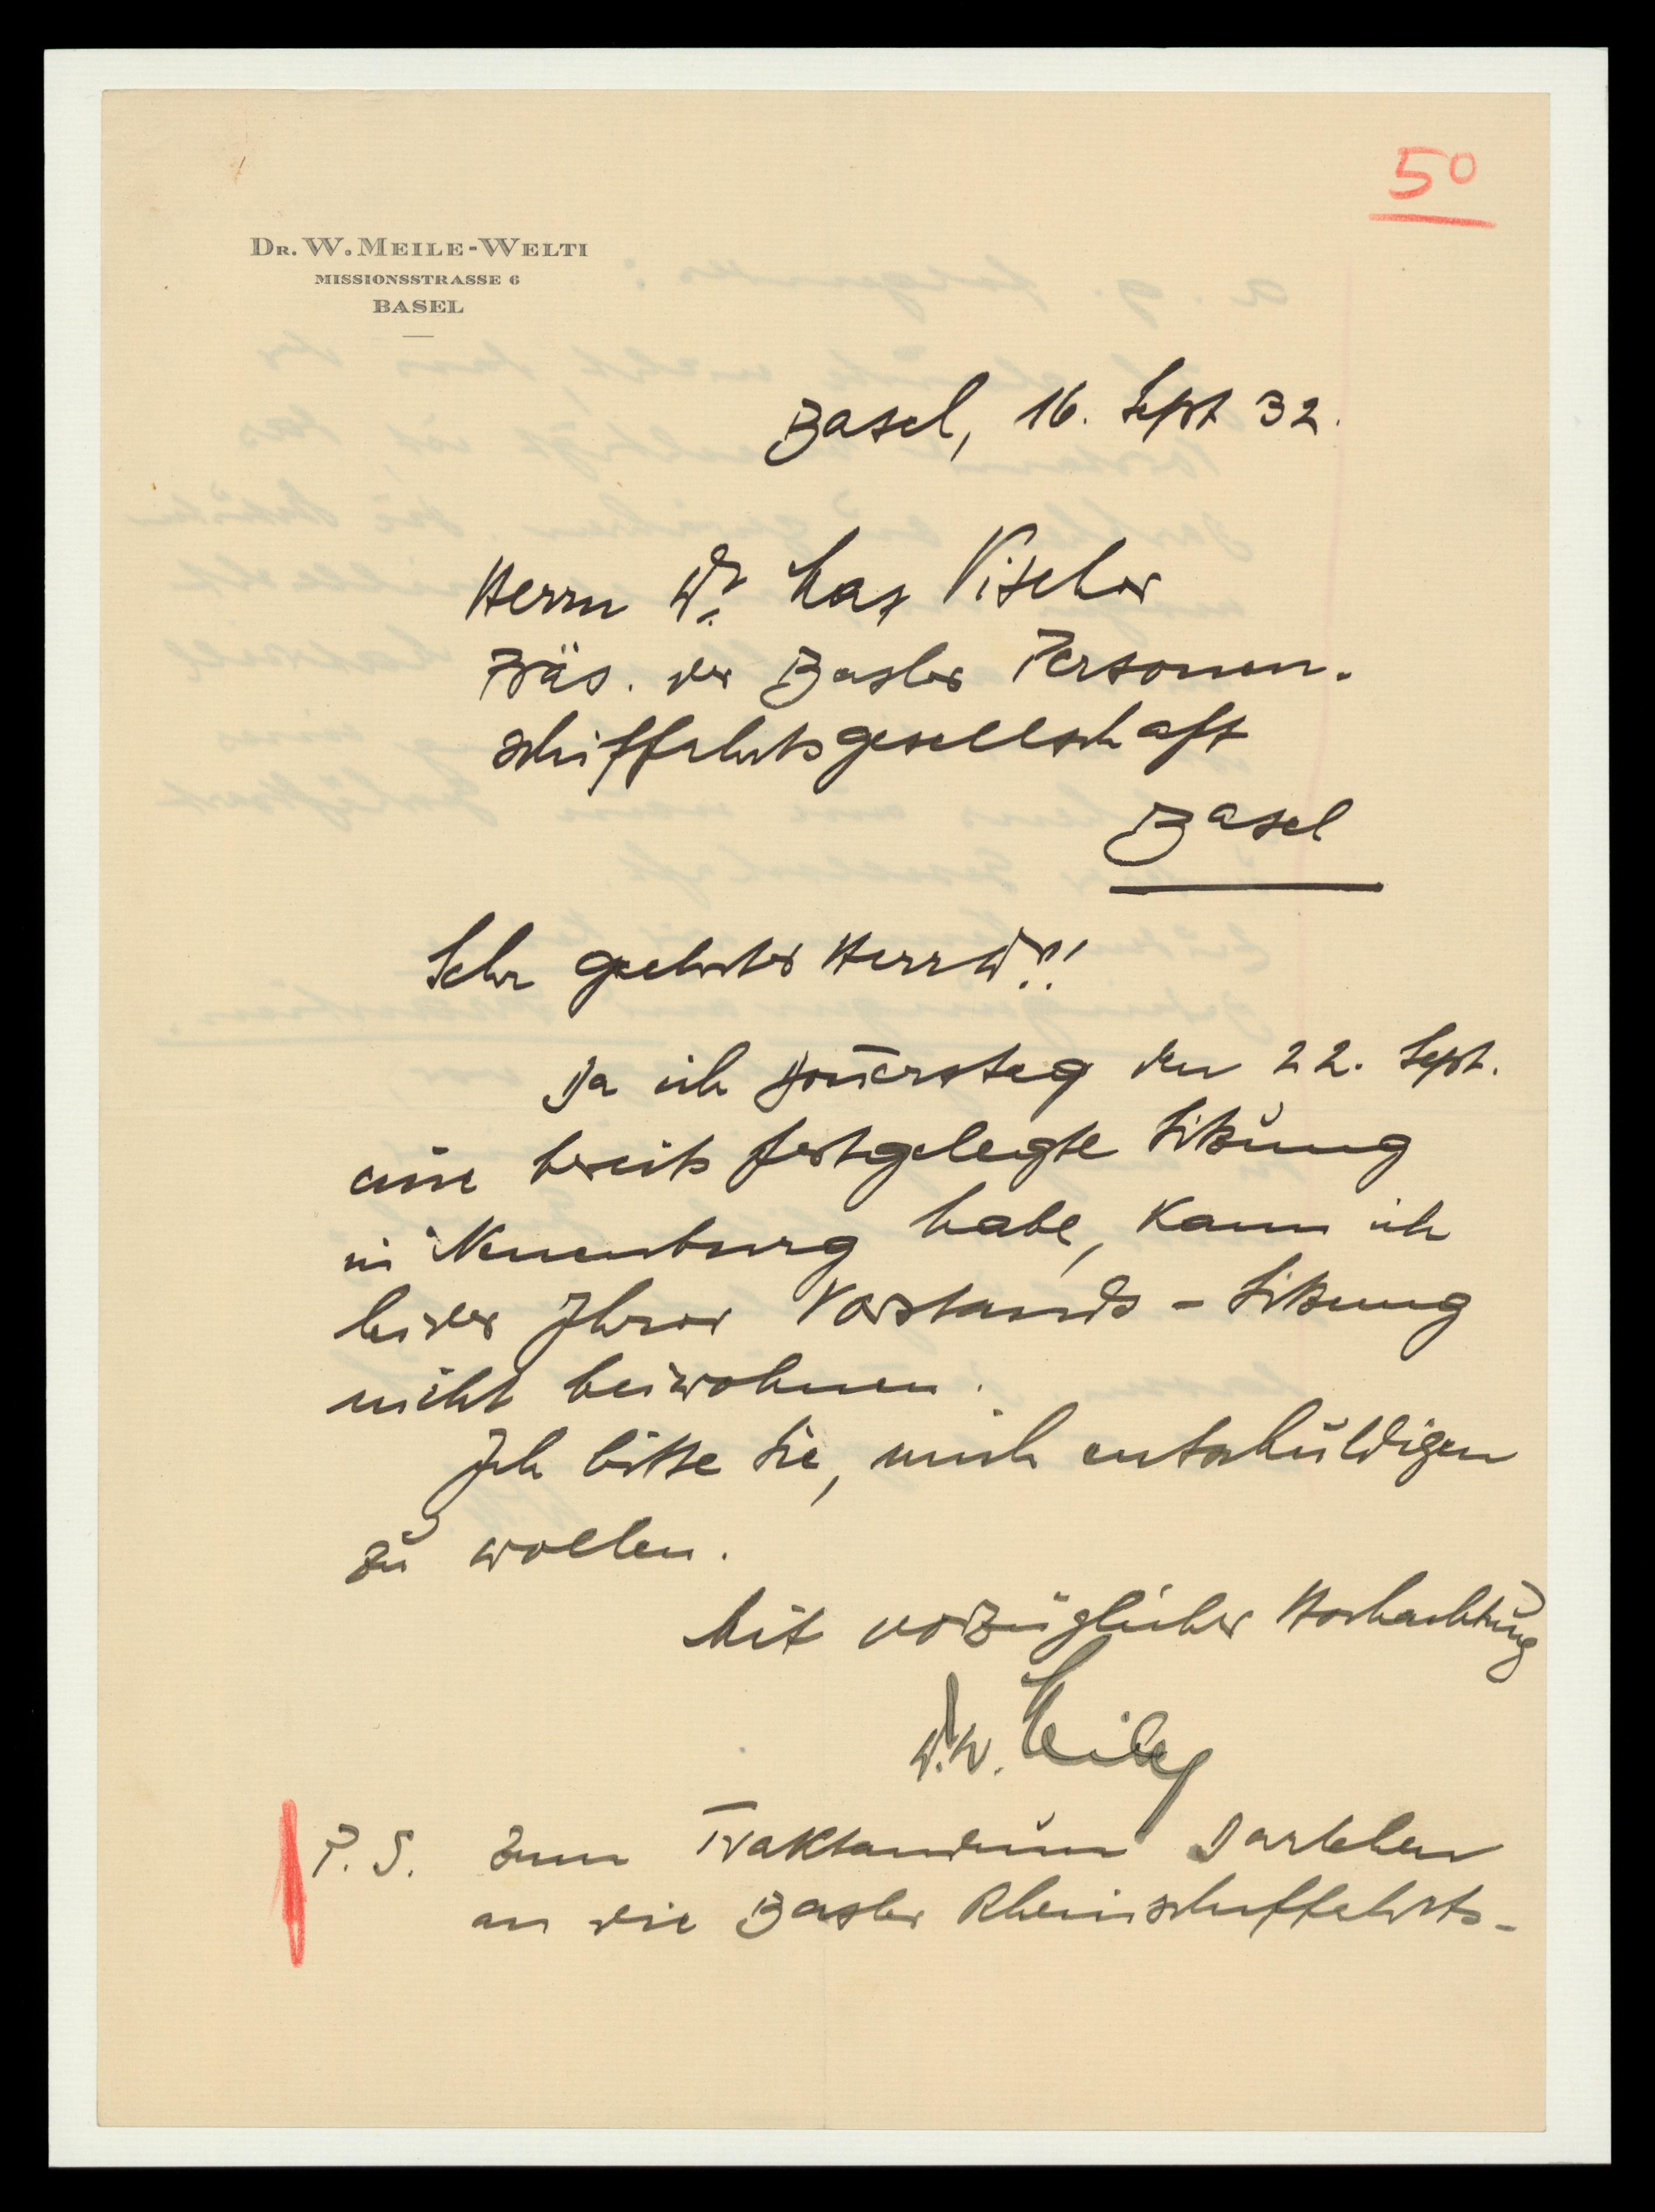 50
DR. W. MEILE-WELTI
MISSIONSSTRASSE 6
BASEL
Basel, 16. Sept 32.
Herrn Dr. Max Vischer
Präs. der Basler Personen-
schiffahrtsgesellschaft
Basel
Sehr geehrter Herr Dr.!
Da ich Don̄erstag den 22. Sept.
eine bereits festgelegte Sitzung
in Neuenburg habe, kann ich
leider Ihrer Vorstands-Sitzung
nicht beiwohnen.
Ich bitte Sie, mich entschuldigen
zu wollen.
Mit vorzüglicher Hochachtung
Dr. W. Meile
P.S. Zum Traktandum Darlehen
an die Basler Rheinschiffahrts-